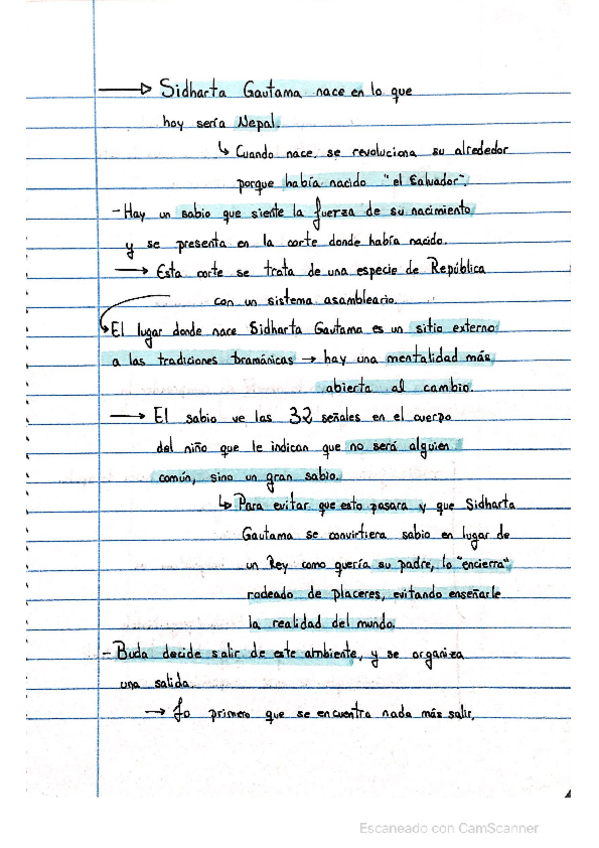 → Sidharta Gautama nace en lo que
hoy sería Nepal.
↳ Cuando nace, se revoluciona su alrededor
porque había nacido "el Salvador".
- Hay un sabio que siente la fuerza de su nacimiento
y se presenta en la corte donde había nacido.
→ Esta corte se trata de una especie de República
con un sistema asambleario.
↳ El lugar donde nace Sidharta Gautama es un sitio externo
a las tradiciones bramánicas → hay una mentalidad más
abierta al cambio.
→ El sabio ve las 32 señales en el cuerpo
del niño que le indican que no será alguien
común, sino un gran sabio.
↳ Para evitar que esto pasara y que Sidharta
Gautama se convirtiera sabio en lugar de
un Rey como quería su padre, lo "encierra"
rodeado de placeres, evitando enseñarle
la realidad del mundo.
- Buda decide salir de este ambiente, y se organiza
una salida.
→ Lo primero que se encuentra nada más salir,
Escaneado con CamScanner